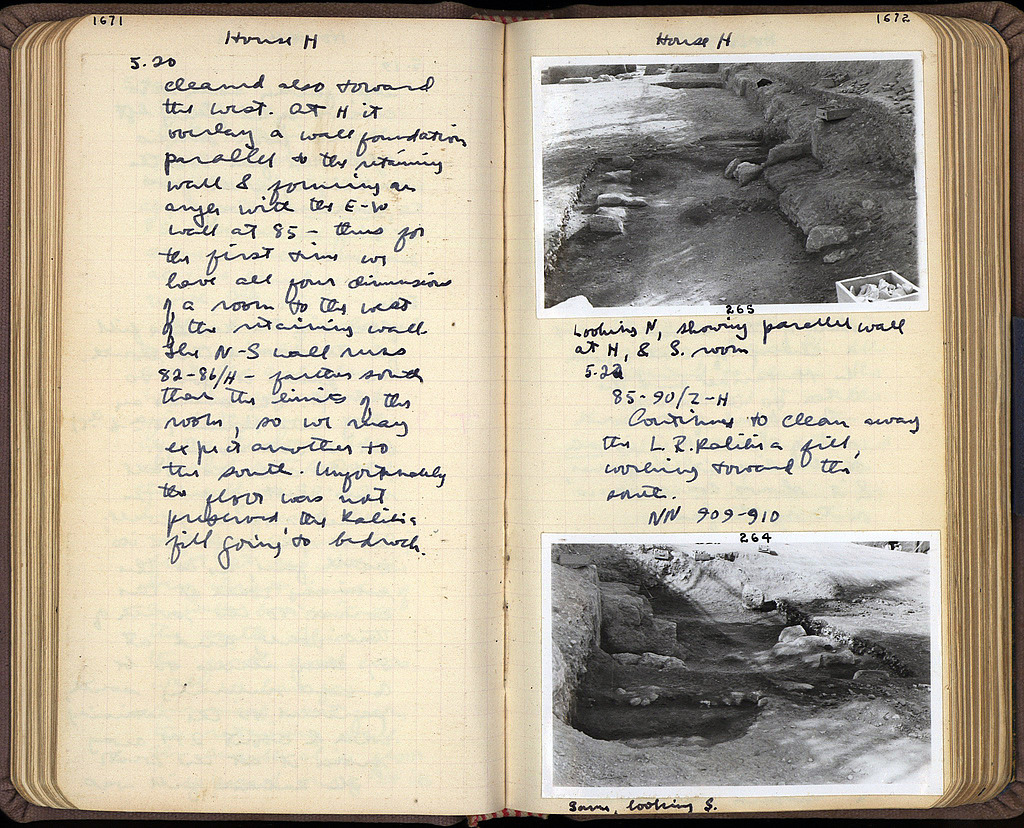 1671
House H
5.20
cleaned also toward
the west. At H it
overlay a wall foundation
parallel to the retaining
wall & forming an
angle with the E-W
wall at 85 - thus for
the first time we
have all four dimensions
of a room to the west
of the retaining wall.
The N-S wall runs
82-86/H - farther south
than the limits of the
room, so we may
expect another to
the south. Unfortunately
the floor was not
preserved, the Kalitia
fill going to bedrock.
1672
House H
265
Looking N, showing parallel wall
at H, & S. room
5.22
85-90/Z-H
Continue to clean away
the L.R. Kalitia fill,
working toward the
south.
NN 909-910
264
Same, looking S.